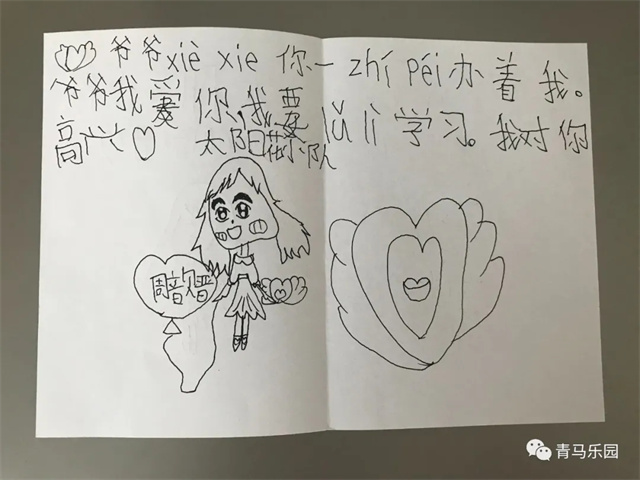 爷爷xiè xie 你一 zhí péi办着 我。
爷爷我爱 你,我要 lǔ lì 学习。我对 你
高兴 太阳花小队
周音
青马乐园